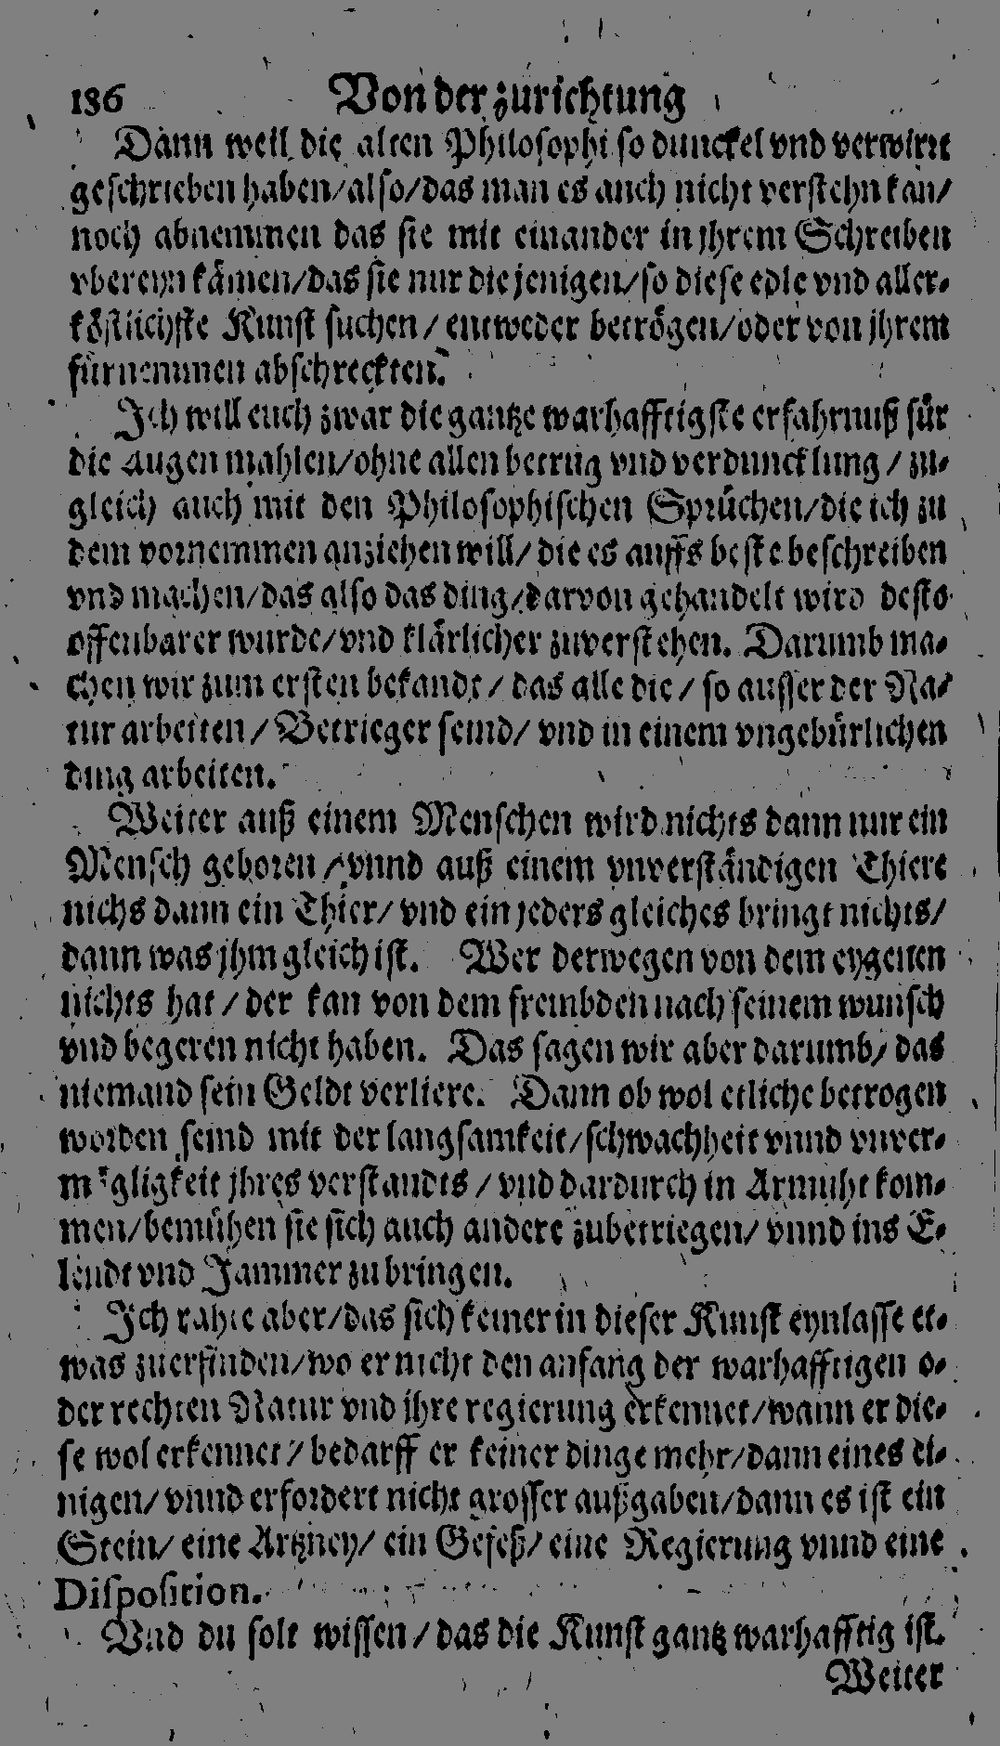 136 Von der zurichtung
Dann weil die alten Philosophi so dunckel vnd verwirrt
geschrieben haben/also/das man es auch nicht verstehn kan/
noch abnemmen das sie mit einander in jhrem Schreiben
vbereyn kämen/das sie nur die jenigen/so diese edle vnd aller-
köstlichste Kunst suchen/entweder betrögen/oder von jhrem
fürnemmen abschreckten.
Ich will euch zwar die gantze warhafftigste erfahrnuß für
die Augen mahlen/ohne allen betrug vnd verduncklung/zu-
gleich auch mit den Philosophischen Sprüchen/die ich zu
dem vornemmen anziehen will/die es auffs beste beschreiben
vnd machen/das also das ding/darvon gehandelt wird desto
offenbarer wurde/vnd klärlicher zuverstehen. Darumb ma-
chen wir zum ersten bekandt/das alle die/so ausser der Na-
tur arbeiten/Betrieger seind/vnd in einem vngebürlichen
ding arbeiten.
Weiter auß einem Menschen wird nichts dann nur ein
Mensch geboren/vnnd auß einem vnverständigen Thiere
nichs dann ein Thier/vnd ein jeders gleiches bringt nichts/
dann was jhm gleich ist. Wer derwegen von dem eygenen
nichts hat/der kan von dem frembden nach seinem wunsch
vnd begeren nicht haben. Das sagen wir aber darumb/das
niemand sein Geldt verliere. Dann ob wol etliche betrogen
worden seind mit der langsamkeit/schwachheit vnnd vnver-
mögligkeit jhres verstandts/vnd dardurch in Armuht kom-
men/bemühen sie sich auch andere zubetriegen/vnnd ins E-
lendt vnd Jammer zu bringen.
Ich rahte aber/das sich keiner in dieser Kunst eynlasse et-
was zuerfinden/wo er nicht den anfang der warhafftigen o-
der rechten Natur vnd jhre regierung erkennet/wann er die-
se wol erkennet/bedarff er keiner dinge mehr/dann eines ei-
nigen/vnnd erfordert nicht grosser außgaben/dann es ist ein
Stein/eine Artzney/ein Geseß/eine Regierung vnnd eine
Disposition.
Vnd du solt wissen/das die Kunst gantz warhafftig ist.
Weiter